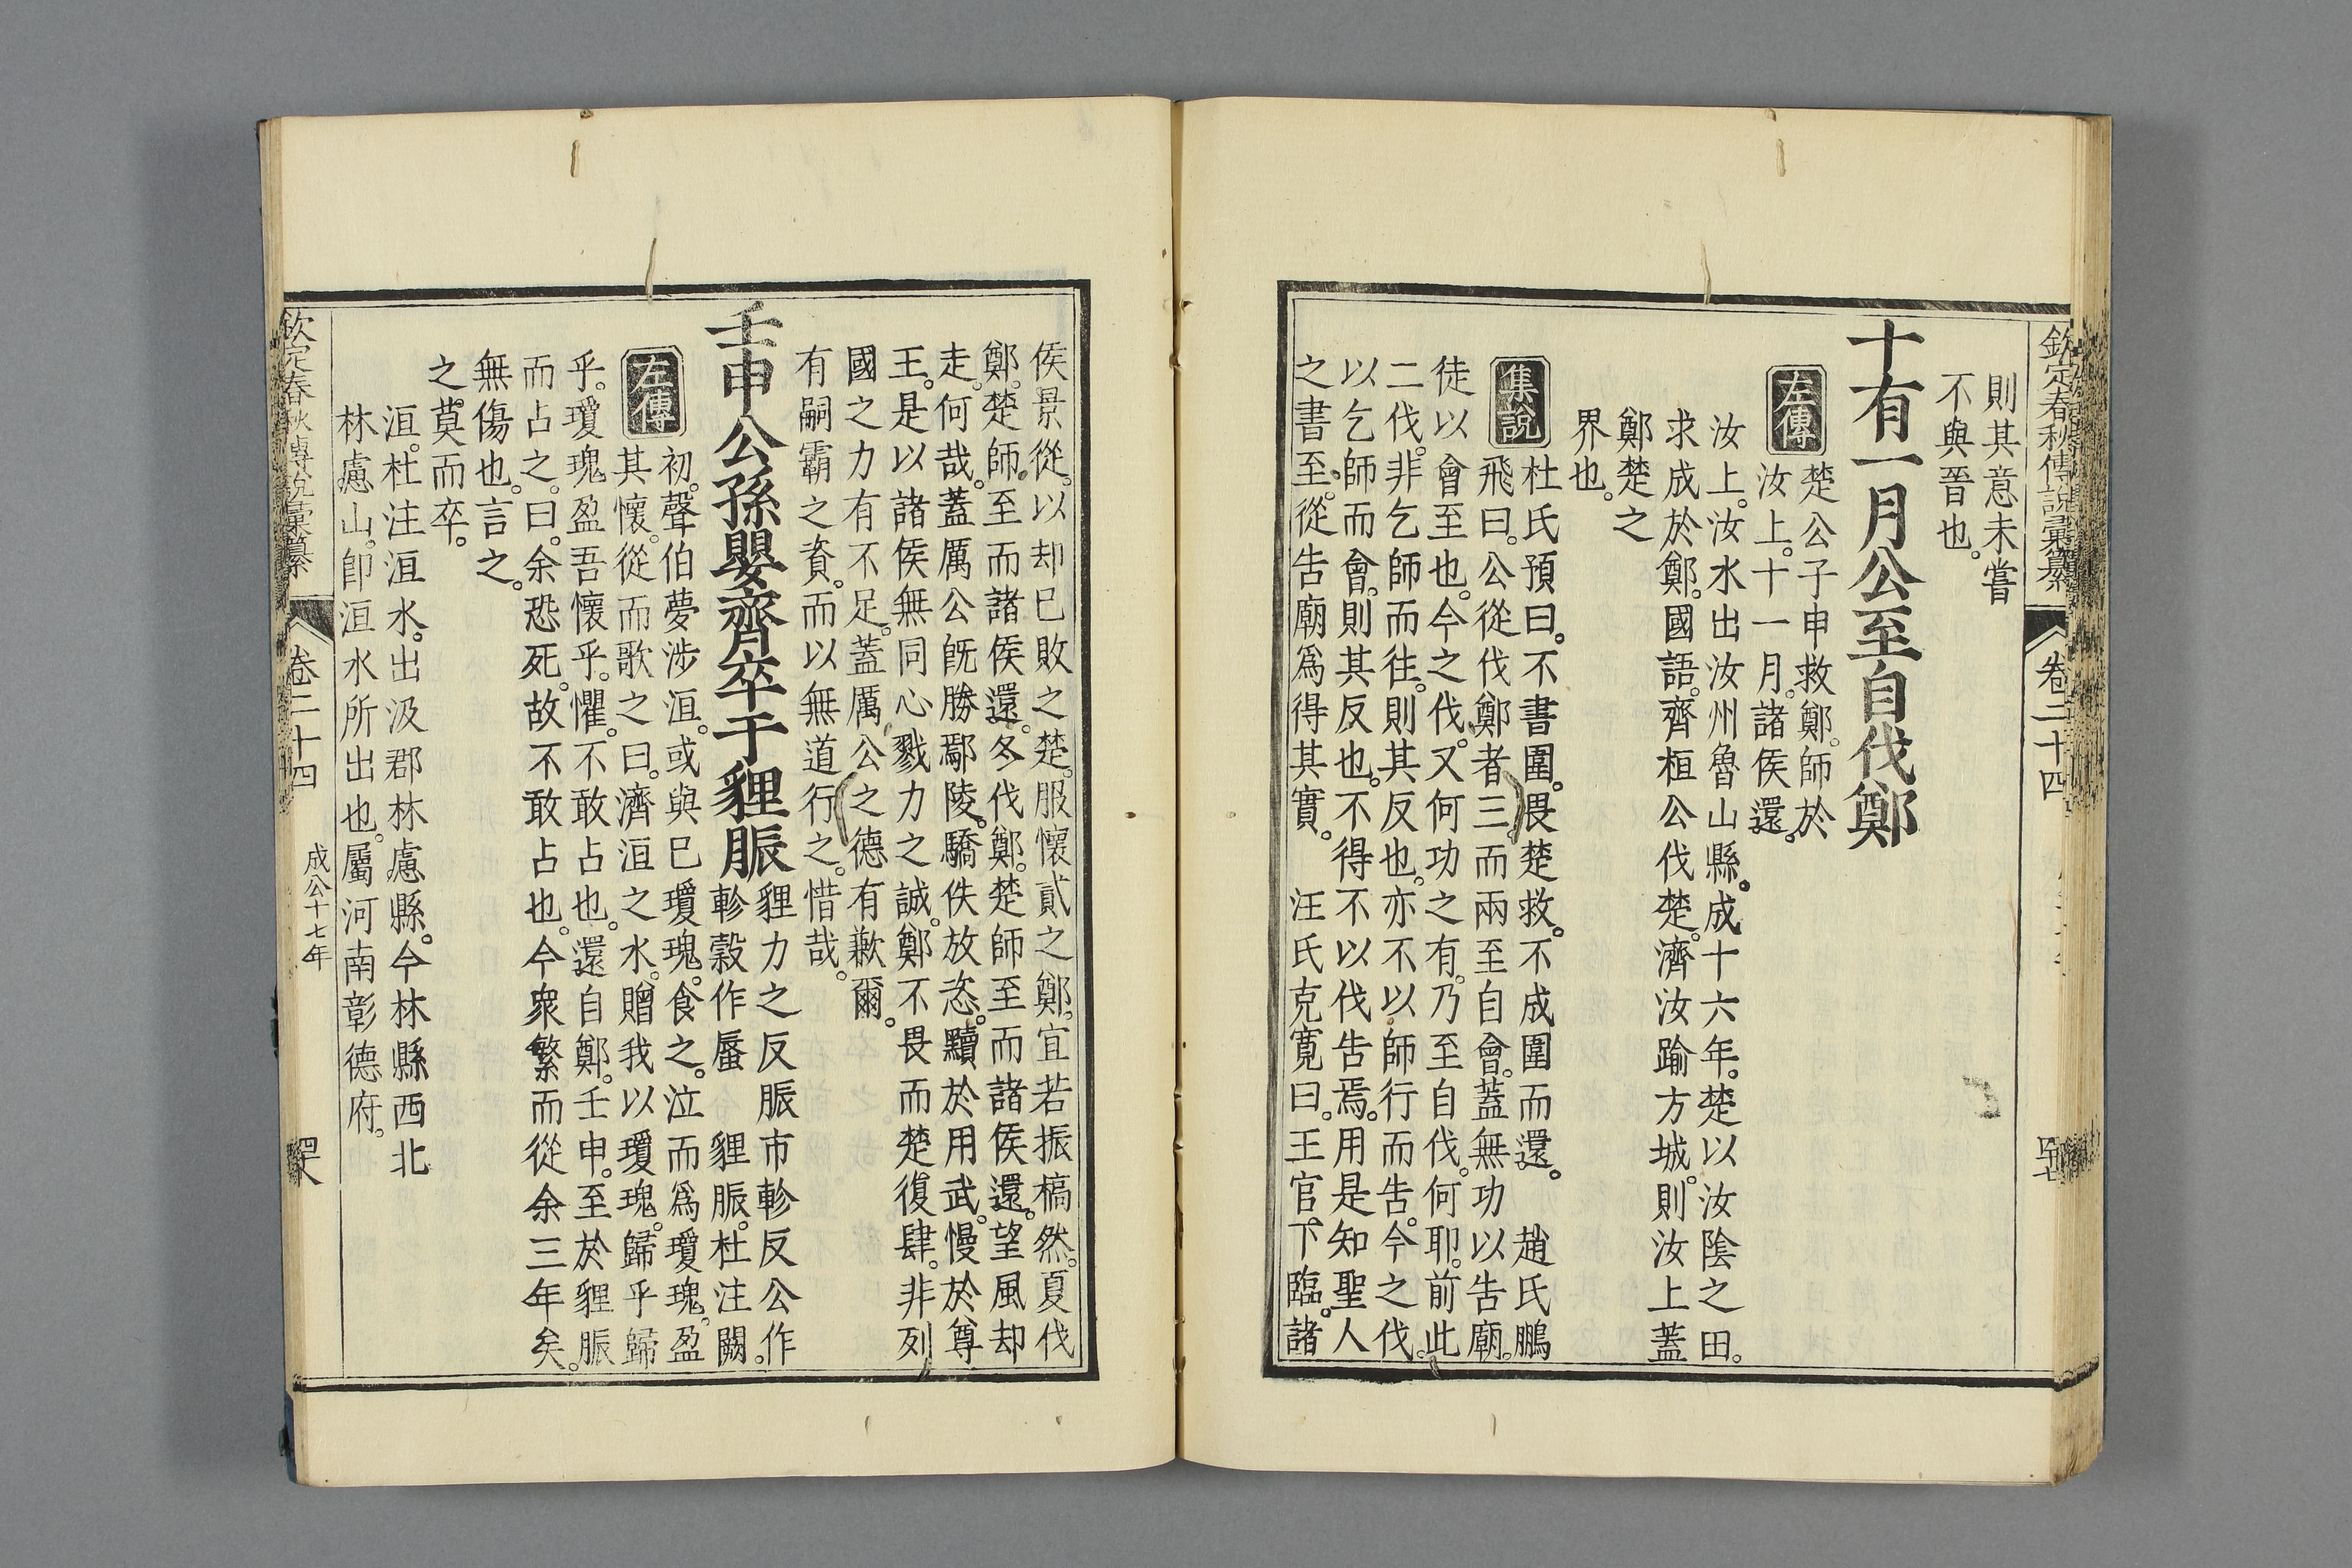 欽定春秋傳說彙纂 卷二十四
則其意未嘗
不與晉也。
十有一月公至自伐鄭
左傳
楚公子申救鄭。師於
汝上。十一月。諸侯還。
汝上。汝水出汝州魯山縣。成十六年。楚以汝陰之田。
求成於鄭。國語。齊桓公伐楚。濟汝踰方城。則汝上蓋
鄭楚之
界也。
集說
杜氏預曰。不書圍。畏楚救。不成圍而還。 趙氏鵬
飛曰。公從伐鄭者三。而兩至自會。蓋無功以告廟。
徒以會至也。今之伐。又何功之有。乃至自伐。何耶。前此
二伐。非乞師而往。則其反也。亦不以師行而告。今之伐。
以乞師而會。則其反也。不得不以伐告焉。用是知聖人
之書至。從告廟爲得其實。 汪氏克寬曰。王官下臨。諸
侯景從。以却已敗之楚。服懷貳之鄭。宜若振槁然。夏伐
鄭。楚師至而諸侯還。冬伐鄭。楚師至而諸侯還。望風却
走。何哉。蓋厲公旣勝鄢陵。驕佚放恣。黷於用武。慢於尊
王。是以諸侯無同心戮力之誠。鄭不畏而楚復肆。非列
國之力有不足。蓋厲公之德有歉爾。
有嗣霸之資。而以無道行之。惜哉。
壬申公孫嬰齊卒于貍脤
貍力之反脤市軫反公作
軫穀作蜃 貍脤。杜注闕。
左傳
初。聲伯夢涉洹。或與已瓊瑰。食之。泣而爲瓊瑰。盈
其懷。從而歌之曰。濟洹之水。贈我以瓊瑰。歸乎歸
乎。瓊瑰盈吾懷乎。懼。不敢占也。還自鄭。壬申。至於貍脤
而占之。曰。余恐死。故不敢占也。今衆繁而從余三年矣。
無傷也。言之。
之莫而卒。
洹。杜注洹水。出汲郡林慮縣。今林縣西北
林慮山。卽洹水所出也。屬河南彰德府。
欽定春秋傳說彙纂 卷二十四 成公十七年